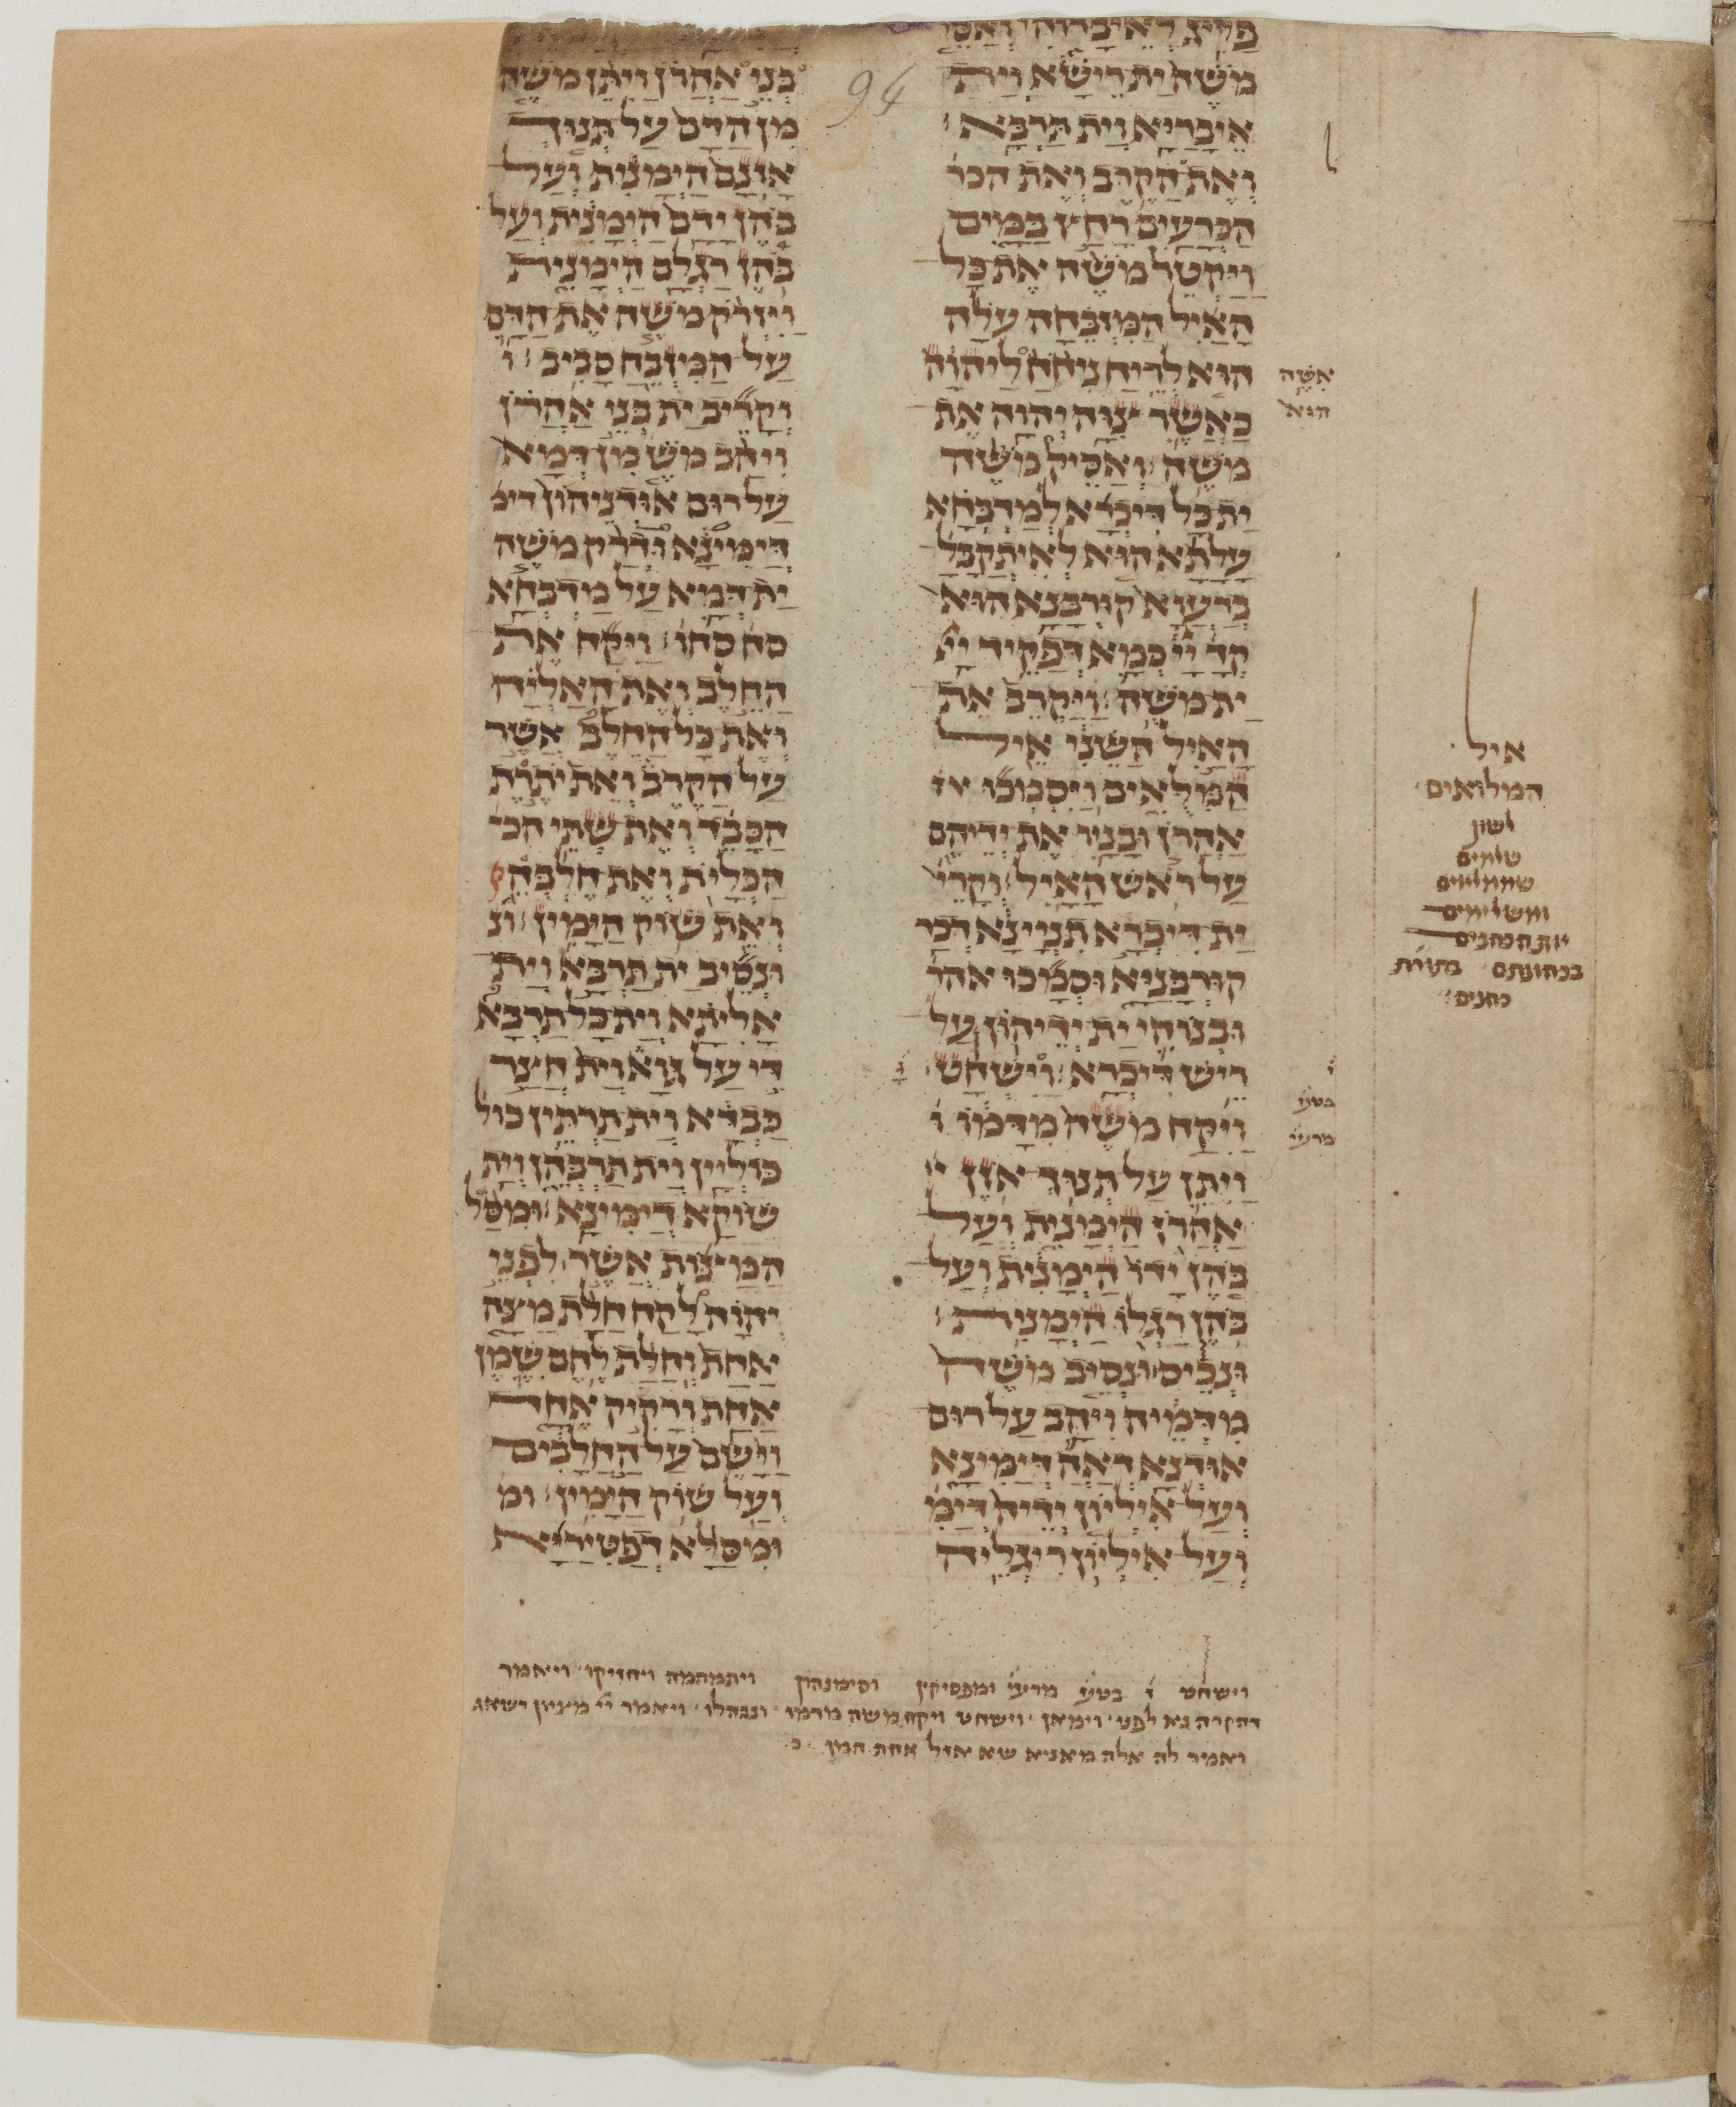 משה ית רישא וית
איבריא וית תרבא
ואת הקרב ואת הכר
הכרעים רחץ במים
ויקטר משה את כל
האיל המזבחה עלה
הוא לריח ניחח ליהוה
כאשר צוה יהוה את
משה ואסיק משה
ית כל דיכרא למדבחא
עלתא הוא לאיתקבל
ברעוא קורבנא הוא
קד יי כמא דפקיד יי
ית משה ויקרב את
האיל השני איל
המלאים ויסמכו
אהרן ובניו את ידיהם
על ראש האיל וקרי
ית דיכרא תנינא דכר
קורבניא וסמכו אהר
ובנוהי ית ידיהון על
ריש דיכרא וישחט
ויקח משה מדמו ו
ויתן על תנוך אזן
אהרן הימנית ועל
בהן ידו הימנית ועל
בהן רגלו הימנית
ונכיס ונסיב משה
מדמיה ויהב על רום
אודנא דאהר דימינא
ועל איליון ידיה דימ
ועל איליון ריגליה
בני אהרן ויתן משה
מן הדם על תנוך
אזנם הימנית ועל
בהן ידם הימנית ועל
בהן רגלם הימנית
ויזרק משה את הדם
על המזבח סביב ו
וקריב ית בני אהרן
ויהב משה מן דמא
על רום אודניהון דימ
דימינא וזרק משה
ית דמא על מדבחא
סח סחו ויקח את
החלב ואת האליה
ואת כל החלב אשר
על הקרב ואת יתרת
הכבד ואת שתי הכל
הכלית ואת חלבהן
ואת שוק הימין ונ
ונסיב ית תרבא וית
אליתא וית כל תרבא
די על גוא וית חצר
כבדא וית תרתין כול
כוליין וית תרבהן וית
שוקא דימינא ומסל
המצות אשר לפני
יהוה לקח חלת מצה
אחת וחלת לחם שמן
אחת ורקיק אחד
וישם על החלבים
ועל שוק הימין ומ
ומסלא דפטיריא
אשה
הוא
איל
המלואים
לשון
שלמים
שממלאים
ומשלימים
את הכהנים
בכהונתם
כהנים
וישחט ז בטע מרעי ומפסיקין וסימנהון ויתמהמה ויחזיקו ויאמר
וימאן וישחט ויקח משה מדמו ונבהלו ויאמר יי